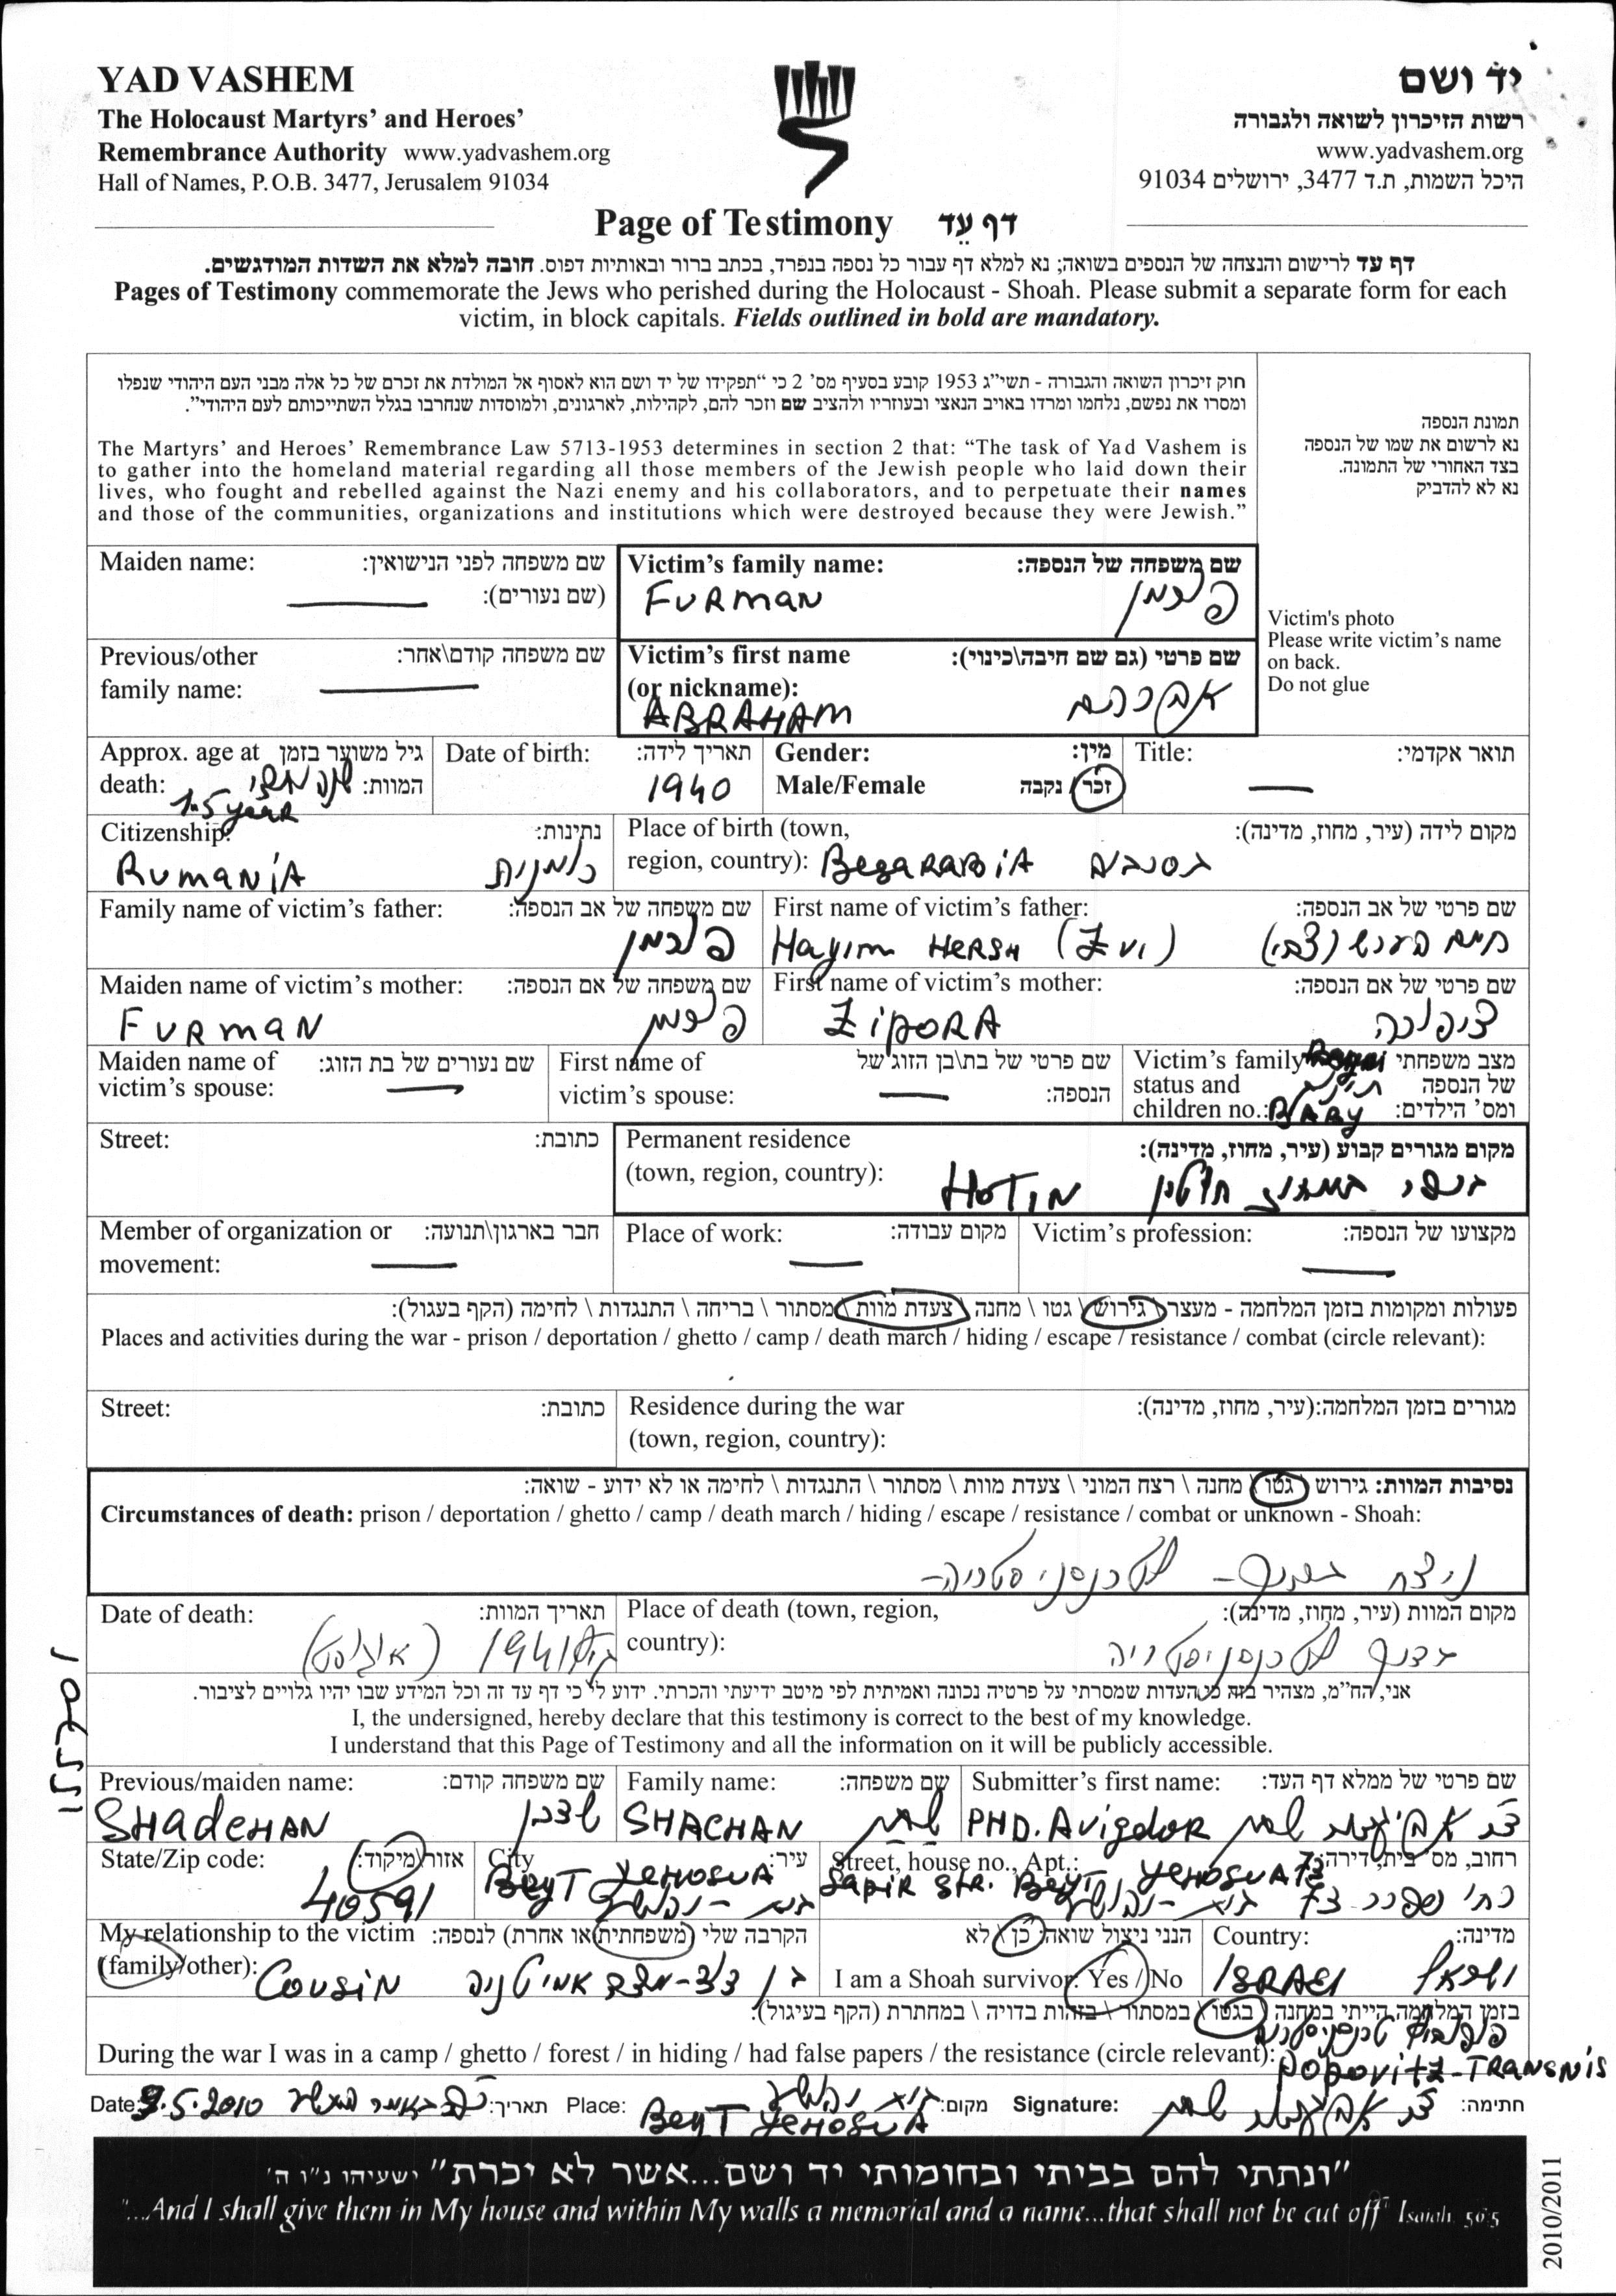 YAD VASHEM
יד ושם
The Holocaust Martyrs’ and Heroes’
רשות הזיכרון לשואה ולגבורה
Remembrance Authority www.yadvashem.org
www.yadvashem.org
Hall of Names, P.O.B. 3477, Jerusalem 91034
היכל השמות, ת.ד 3477, ירושלים 91034
Page of Testimony דף עֵד
דף עד לרישום והנצחה של הנספים בשואה; נא למלא דף עבור כל נספה בנפרד, בכתב ברור ובאותיות דפוס. חובה למלא את השדות המודגשים.
Pages of Testimony commemorate the Jews who perished during the Holocaust - Shoah. Please submit a separate form for each
victim, in block capitals. Fields outlined in bold are mandatory.
חוק זיכרון השואה והגבורה - תשי״ג 1953 קובע בסעיף מס' 2 כי “תפקידו של יד ושם הוא לאסוף אל המולדת את זכרם של כל אלה מבני העם היהודי שנפלו
ומסרו את נפשם, נלחמו ומרדו באויב הנאצי ובעוזריו ולהציב שם וזכר להם, לקהילות, לארגונים, ולמוסדות שנחרבו בגלל השתייכותם לעם היהודי”.
The Martyrs’ and Heroes’ Remembrance Law 5713-1953 determines in section 2 that: “The task of Yad Vashem is
to gather into the homeland material regarding all those members of the Jewish people who laid down their
lives, who fought and rebelled against the Nazi enemy and his collaborators, and to perpetuate their names
and those of the communities, organizations and institutions which were destroyed because they were Jewish.”
תמונת הנספה
נא לרשום את שמו של הנספה
בצד האחורי של התמונה.
נא לא להדביק
Victim's photo
Please write victim’s name
on back.
Do not glue
Maiden name: שם משפחה לפני הנישואין:
(שם נעורים):
Victim’s family name: שם משפחה של הנספה:
FURMAN פורמן
Previous/other שם משפחה קודם\אחר:
family name:
Victim’s first name שם פרטי (גם שם חיבה\כינוי):
(or nickname):
ABRAHAM אברהם
Approx. age at גיל משוער בזמן
death: המוות: שנה וחצי
1.5 year
Date of birth: תאריך לידה:
1940
Gender: מין:
Male/Female זכר / נקבה
Title: תואר אקדמי:
Citizenship: נתינות:
RUMANiA רומנית
Place of birth (town, מקום לידה (עיר, מחוז, מדינה):
region, country): BESARABiA בסרביה
Family name of victim’s father: שם משפחה של אב הנספה:
פורמן
First name of victim’s father: שם פרטי של אב הנספה:
Hayim HERSH (Zvi) חיים הערש (צבי)
Maiden name of victim’s mother: שם משפחה של אם הנספה:
FURMAN פורמן
First name of victim’s mother: שם פרטי של אם הנספה:
ZiPORA ציפורה
Maiden name of שם נעורים של בת הזוג:
victim’s spouse:
First name of שם פרטי של בת\בן הזוג של
victim’s spouse: הנספה:
Victim’s family מצב משפחתי
status and של הנספה תינוק
children no.: ומס' הילדים:
Street: כתובת:
Permanent residence מקום מגורים קבוע (עיר, מחוז, מדינה):
(town, region, country):
HOTIN במחוז חוטין
Member of organization or חבר בארגון\תנועה:
movement:
Place of work: מקום עבודה:
Victim’s profession: מקצועו של הנספה:
פעולות ומקומות בזמן המלחמה - מעצר \ גירוש \ גטו \ מחנה \ צעדת מוות \ מסתור \ בריחה \ התנגדות \ לחימה (הקף בעגול):
Places and activities during the war - prison / deportation / ghetto / camp / death march / hiding / escape / resistance / combat (circle relevant):
Street: כתובת:
Residence during the war מגורים בזמן המלחמה:(עיר, מחוז, מדינה):
(town, region, country):
נסיבות המוות: גירוש \ גטו \ מחנה \ רצח המוני \ צעדת מוות \ מסתור \ התנגדות \ לחימה או לא ידוע - שואה:
Circumstances of death: prison / deportation / ghetto / camp / death march / hiding / escape / resistance / combat or unknown - Shoah:
טרנסניסטריה-
Date of death: תאריך המוות:
1941 (אוגוסט)
Place of death (town, region, מקום המוות (עיר, מחוז, מדינה):
country):
טרנסניסטריה
אני, הח״מ, מצהיר בזה כי העדות שמסרתי על פרטיה נכונה ואמיתית לפי מיטב ידיעתי והכרתי. ידוע לי כי דף עד זה וכל המידע שבו יהיו גלויים לציבור.
I, the undersigned, hereby declare that this testimony is correct to the best of my knowledge.
I understand that this Page of Testimony and all the information on it will be publicly accessible.
Previous/maiden name: שם משפחה קודם:
SHADCHAN שדכן
Family name: שם משפחה:
SHACHAN שחן
Submitter’s first name: שם פרטי של ממלא דף העד:
PHD. Avigdor ד״ר אביגדור שחן
State/Zip code: אזור\מיקוד:
40591
City עיר:
BEYT YEHOSUA בית-יהושע
Street, house no., Apt.: רחוב, מס' בית, דירה:
SAPIR STR. BEYT YEHOSUA 73
רח' ספיר 73 בית-יהושע
My relationship to the victim הקרבה שלי (משפחתית או אחרת) לנספה:
(family/other): COUSiN בן דוד-מצד
I am a Shoah survivor: Yes / No הנני ניצול שואה: כן \ לא
Country: מדינה:
ISRAEL ישראל
בזמן המלחמה הייתי במחנה \ בגטו \ במסתור \ בזהות בדויה \ במחתרת (הקף בעיגול):
During the war I was in a camp / ghetto / forest / in hiding / had false papers / the resistance (circle relevant):
POPOVITZ-TRANSNIS
Date: 9.5.2010 תאריך:
Place: BEYT YEHOSUA בית יהושע מקום:
Signature: ד״ר אביגדור שחן חתימה:
"ונתתי להם בביתי ובחומותי יד ושם...אשר לא יכרת" ישעיהו נ"ו ה'
"...And I shall give them in My house and within My walls a memorial and a name...that shall not be cut off" Isaiah 56:5
2010/2011